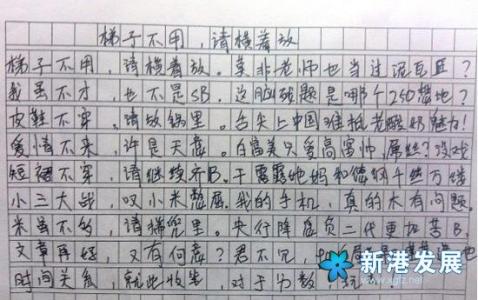 梯子不用,请横着放
梯子不用,请横着放。莫非老师也当过泥瓦匠?
我虽不才,也不是SB,这脑残题是哪个250整地?
皮鞋不穿,请放锅里。舌尖上中国难抵老酸奶魅力!
爱情不来,许是天意。白富美只爱高富帅,屌丝?没戏
短裙不穿,请继续齐B。干露露她妈和德纲千丝万缕
小三大战,叹小米整居。我的手机,真的木有问题。
米虽不多,请揣兜里。央行降息负二代更加苦B,
文章再好,又有何意?君不见,
时间关系,就此收笔,对于分数
新港发展
www.xgfz.net